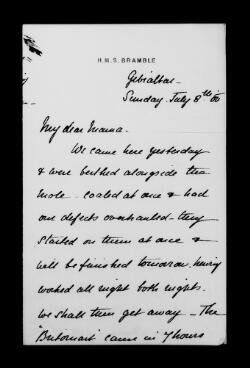 H.M.S. BRAMBLE
Gibraltar -
Sunday. July 8th/00
My dear Mama.
We came here yesterday
& were berthed alongside the
mole - coaled at once & had
our defects overhauled - they
started on them at once &
will be finished tomorrow. having
worked all night both nights.
We shall then get away - The
"Britomart" came in 7 hours